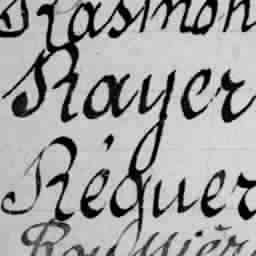 Rasmon
Rayer
Réquer
Roussièr